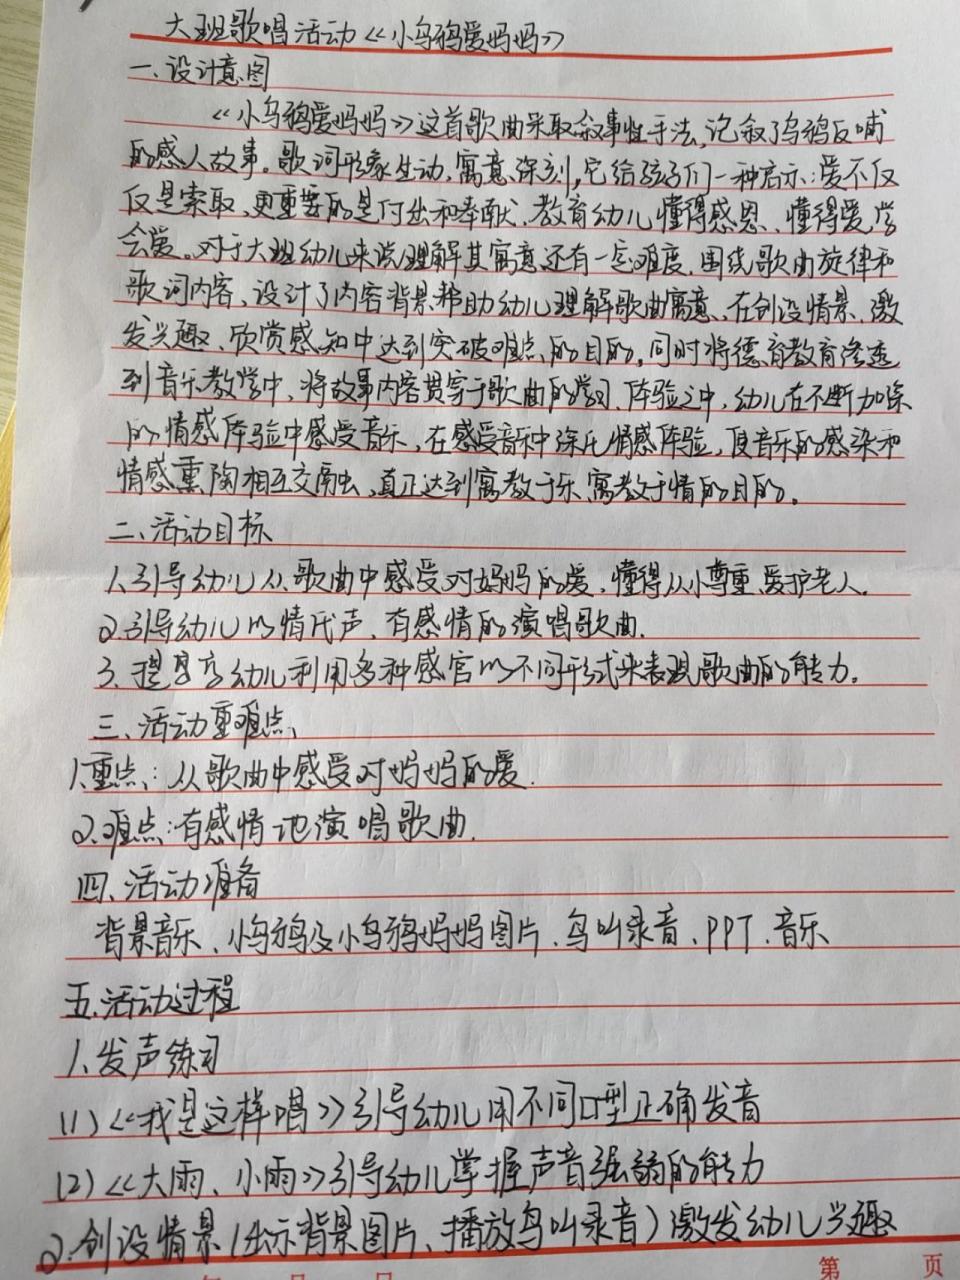 大班歌唱活动《小乌鸦爱妈妈》
一、设计意图
《小乌鸦爱妈妈》这首歌曲采取叙事性手法,记叙了乌鸦反哺
的感人故事。歌词形象生动,寓意深刻,它给孩子们一种启示:爱不仅
仅是索取、更重要的是付出和奉献、教育幼儿懂得感恩、懂得爱,学
会爱。对于大班幼儿来说理解其寓意还有一定难度,围绕歌曲旋律和
歌词内容、设计了内容背景帮助幼儿理解歌曲寓意、在创设情景、激
发兴趣、欣赏感知中达到突破难点的目的。同时将德育教育渗透
到音乐教学中、将故事内容贯穿于歌曲的学习、体验之中,幼儿在不断加深
的情感体验中感受音乐,在感受音乐中深化情感体验,使音乐的感染和
情感熏陶相互交融、真正达到寓教于乐、寓教于情的目的。
二、活动目标
1、引导幼儿从歌曲中感受对妈妈的爱,懂得从小尊重、爱护老人。
2、引导幼儿以情代声、有感情的演唱歌曲.
3、提高幼儿利用多种感官以不同形式来表现歌曲的能力。
三、活动重难点、
1、重点:从歌曲中感受对妈妈的爱.
2、难点:有感情地演唱歌曲.
四、活动准备
背景音乐、小乌鸦及小乌鸦妈妈图片、鸟叫录音、PPT、音乐
五、活动过程
1、发声练习
(1)《我是这样唱》引导幼儿用不同口型正确发音
(2)《大雨、小雨》引导幼儿掌握声音强弱的能力
2、创设情景(出示背景图片、播放鸟叫录音)激发幼儿兴趣
第 页